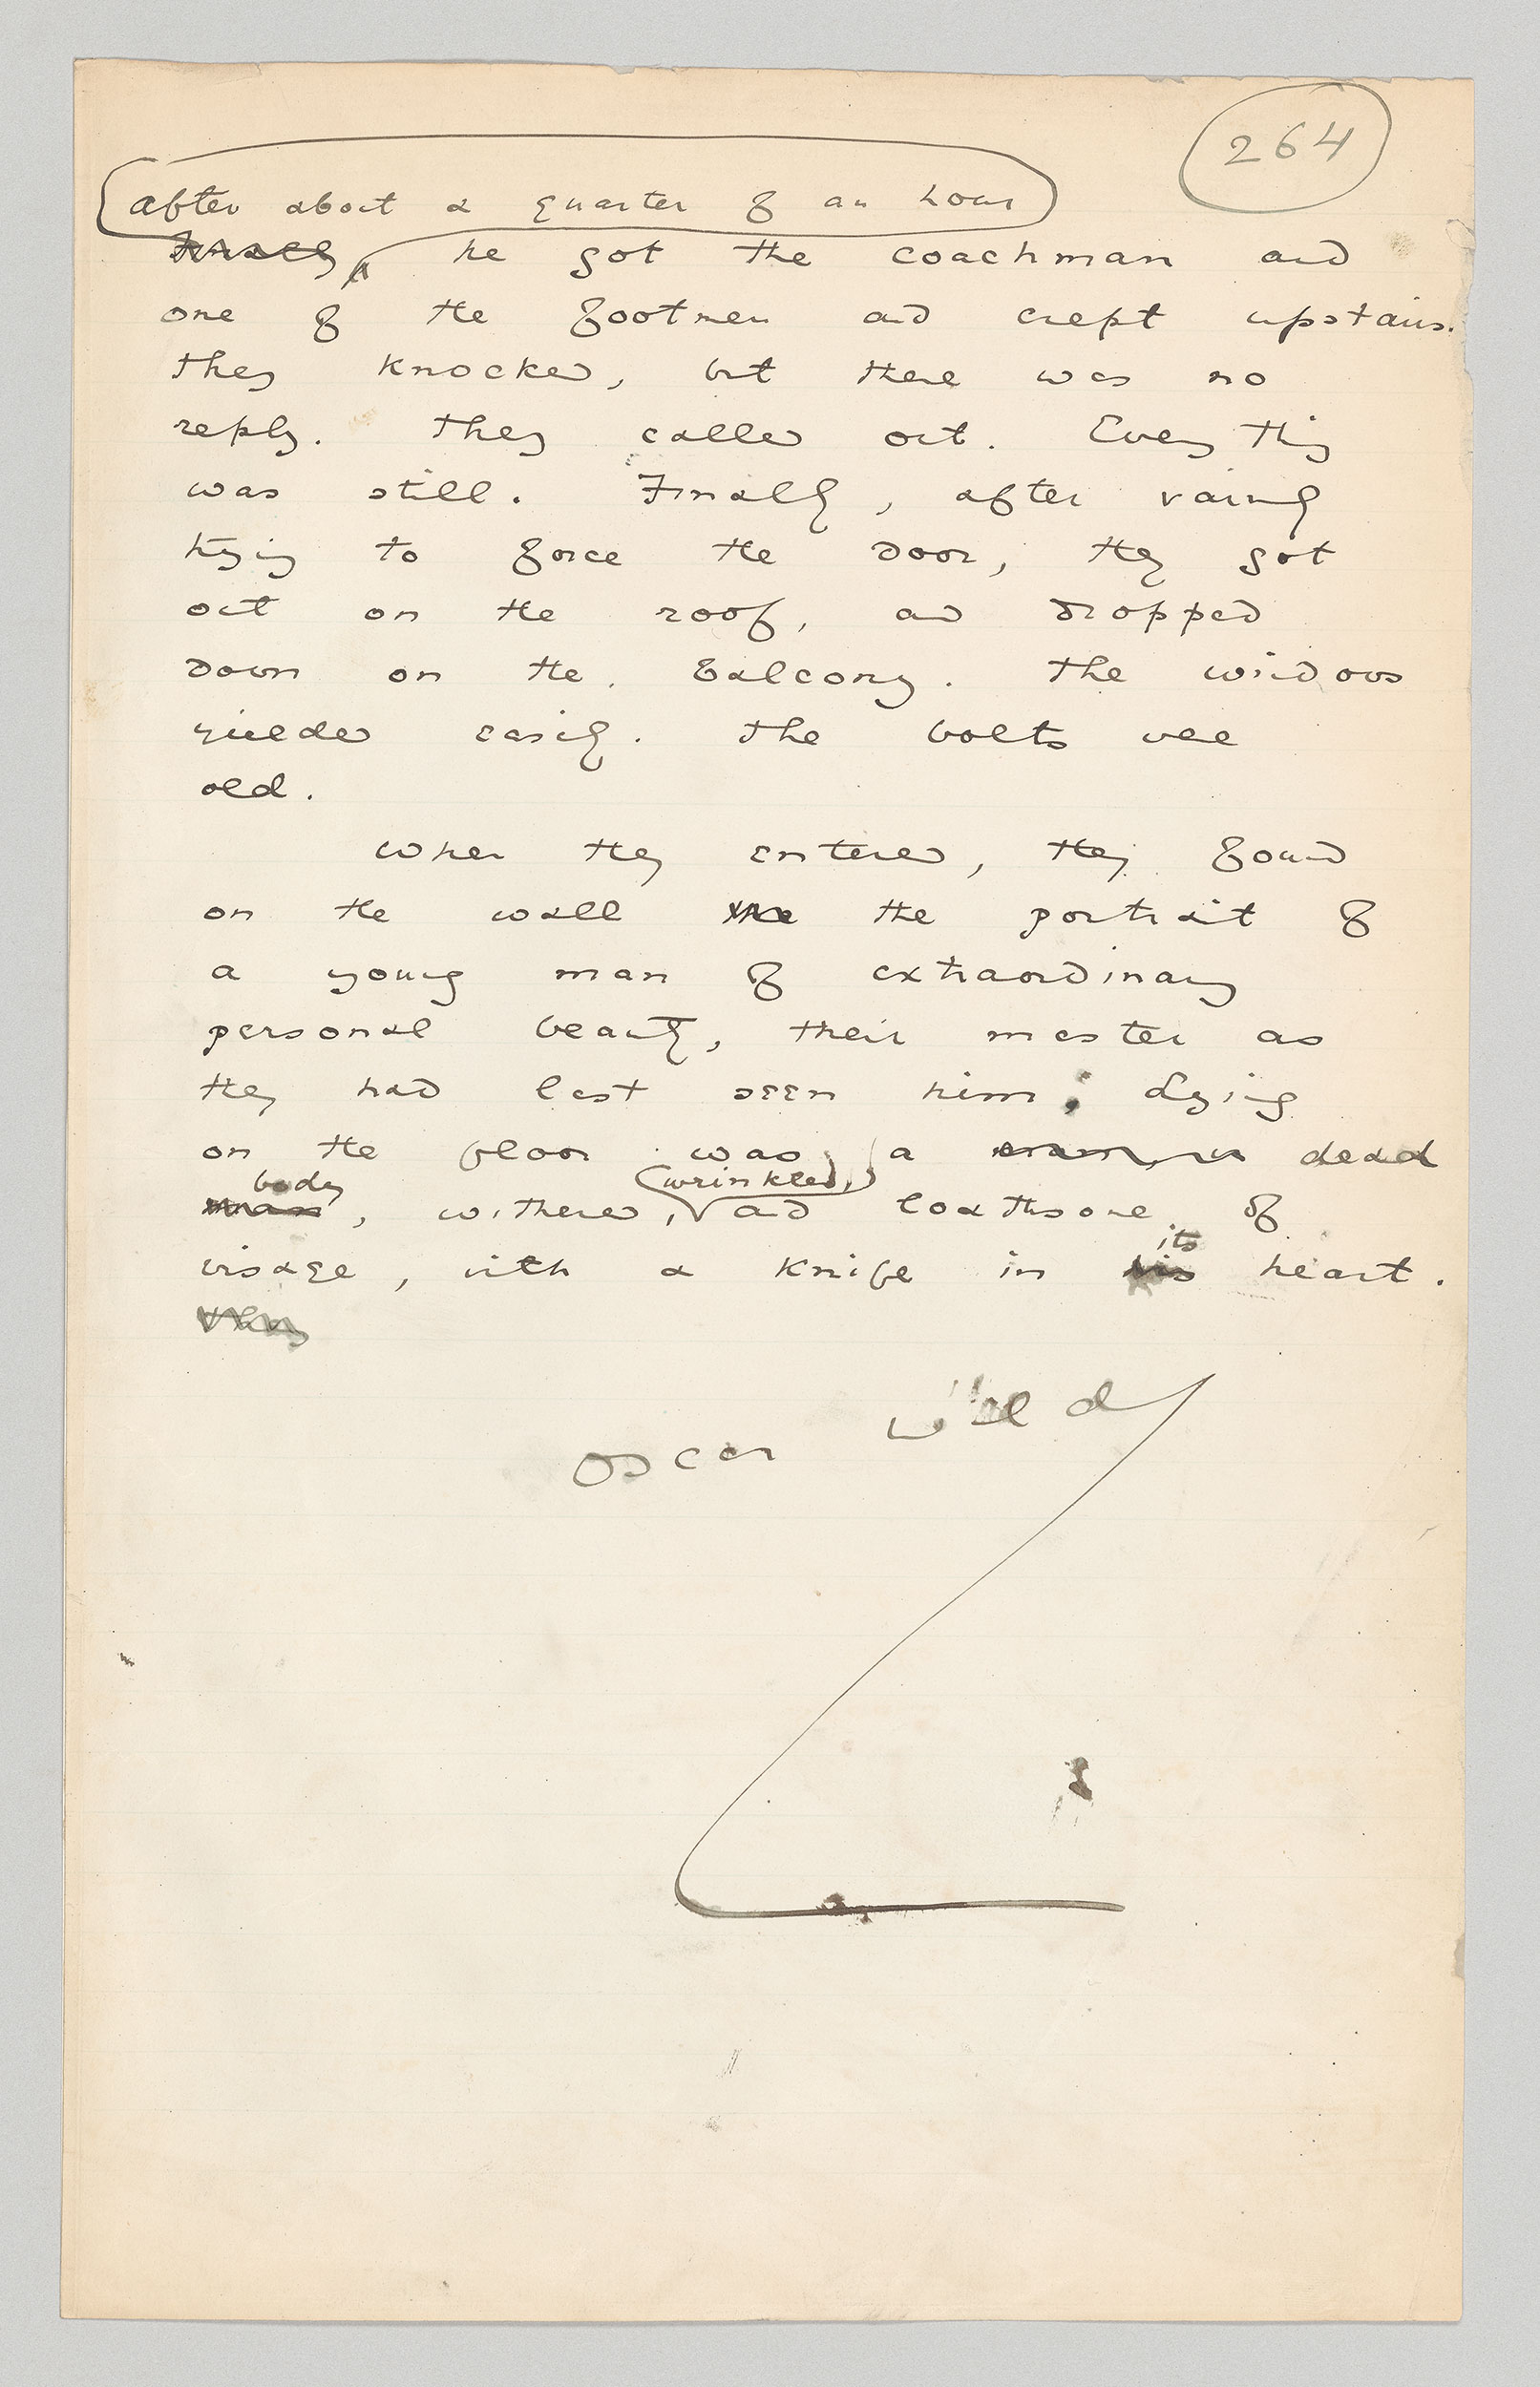 264
After about a quarter of an hour
Finally, he got the coachman and
one of the footmen and crept upstairs.
They knocked, but there was no
reply. They called out. Every thing
was still. Finally, after vainly
trying to force the door, they got
out on the roof, and dropped
down on the balcony. The windows
yielded easily. The bolts were
old.
When they entered, they found
on the wall the the portrait of
a young man of extraordinary
personal beauty, their master as
they had last seen him. Lying
on the floor was a dead
body
wrinkled,
man, withered, and loathsome of
its
visage, with a knife in his heart.
Oscar Wilde